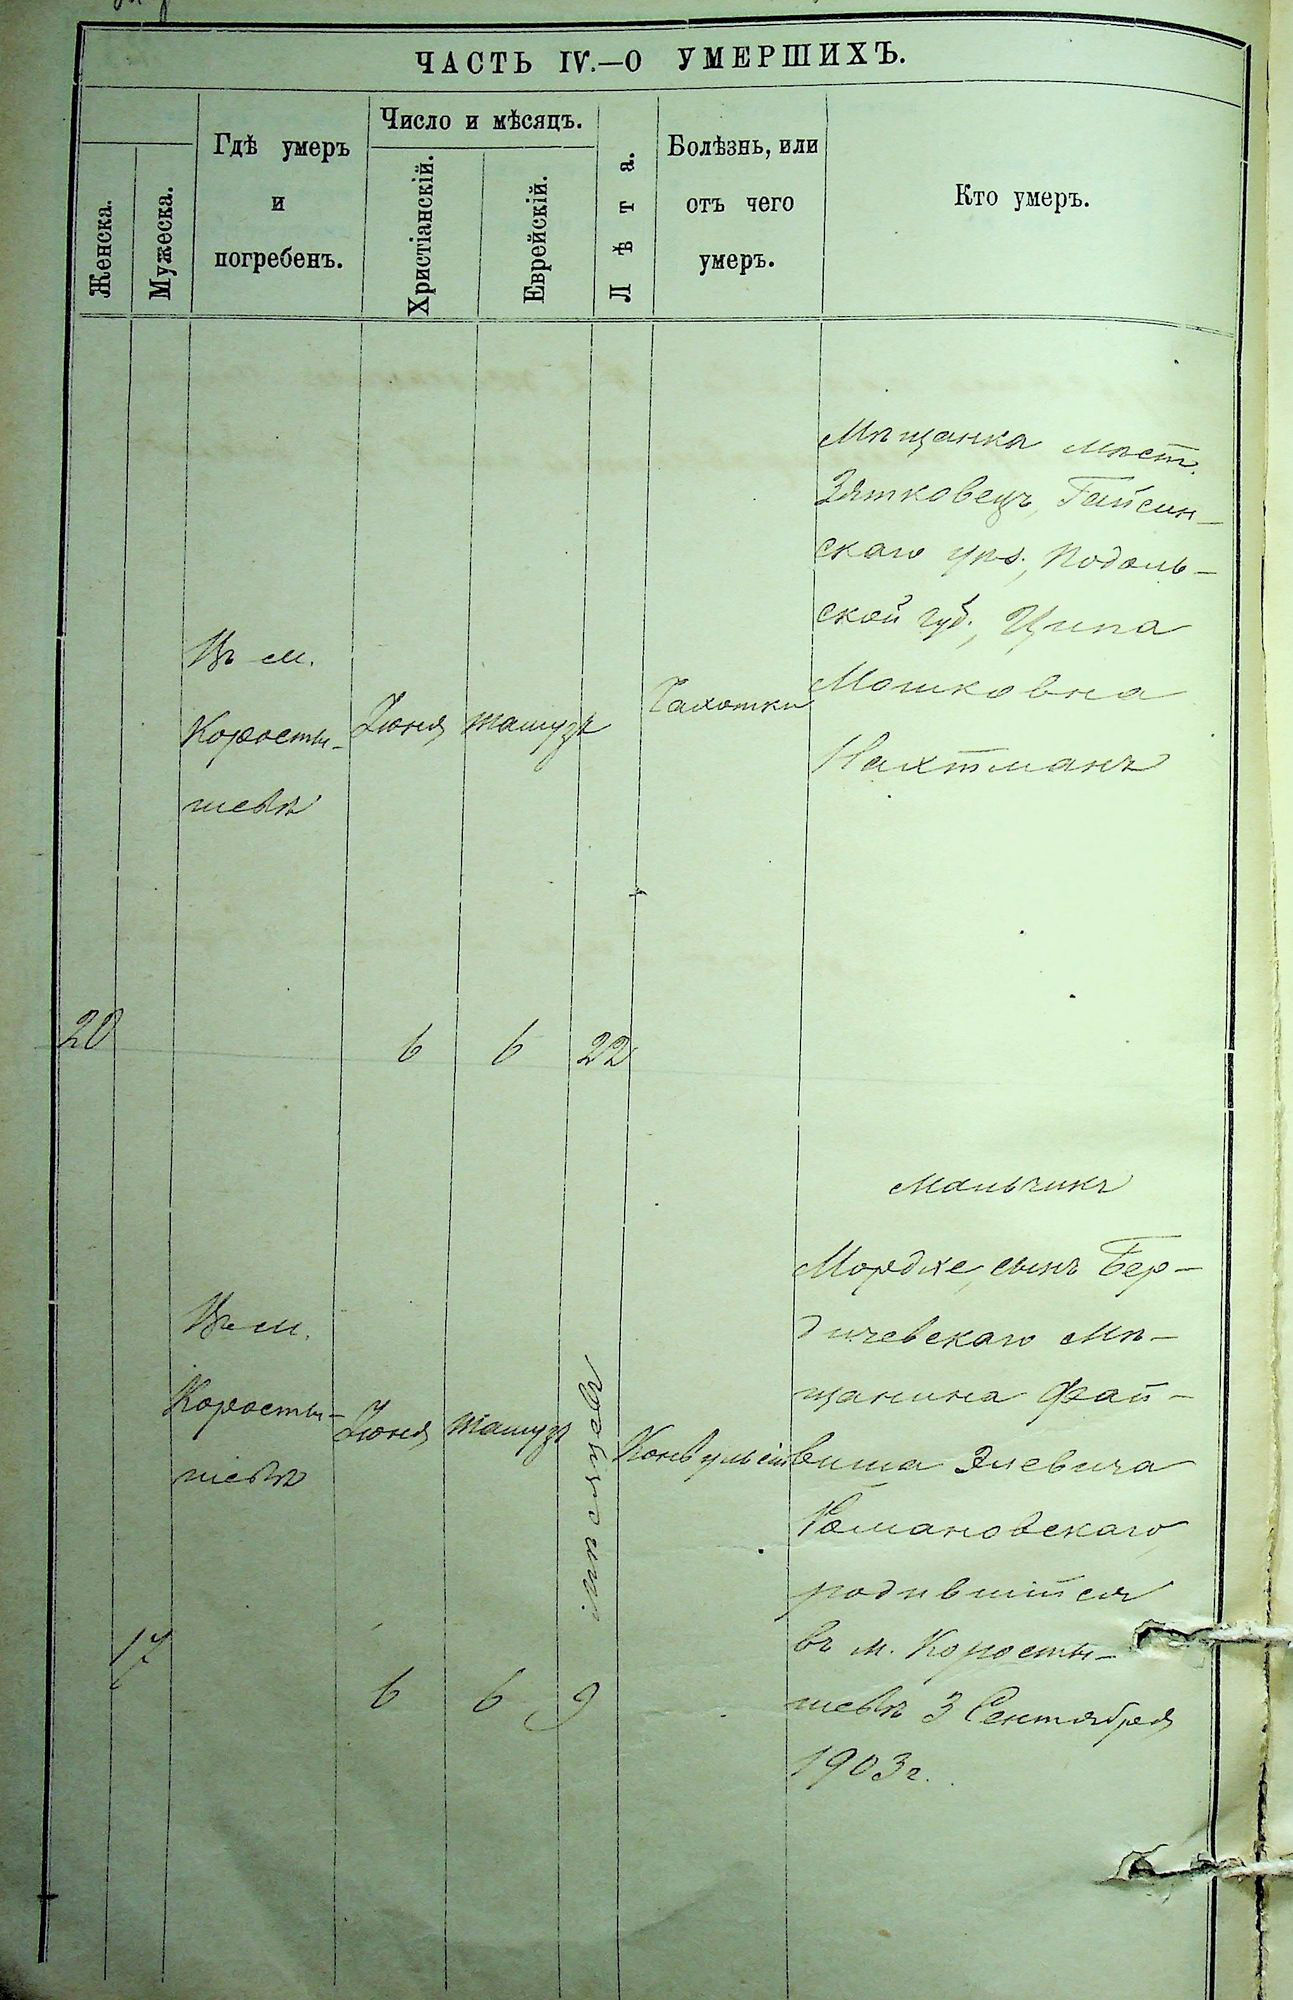 ЧАСТЬ IV.—О УМЕРШИХЪ.
Женска.
Мужеска.
Гдѣ умеръ
и
погребенъ.
Число и мѣсяцъ.
Христіанскій.
Еврейскій.
Лѣта.
Болѣзнь, или
отъ чего
умеръ.
Кто умеръ.
20
Въ м.
Коросты-
шевѣ
Іюня
6
Тамузъ
6
22
Чахотки
Мѣщанка мѣст.
Зятковецъ, Гайсин-
скаго уѣз., Подоль-
ской губ., Ципа
Мошковна
Нахтманъ
17
Въ м.
Коросты-
шевѣ
Іюня
6
Тамузъ
6
9
мѣсяцевъ
Конвульсіи
Мальчикъ
Мордке, сынъ Бер-
дичевскаго мѣ-
щанина Фай-
виша Элевича
Романовскаго,
родившійся
въ м. Коросты-
шевѣ 3 Сентября
1903 г.